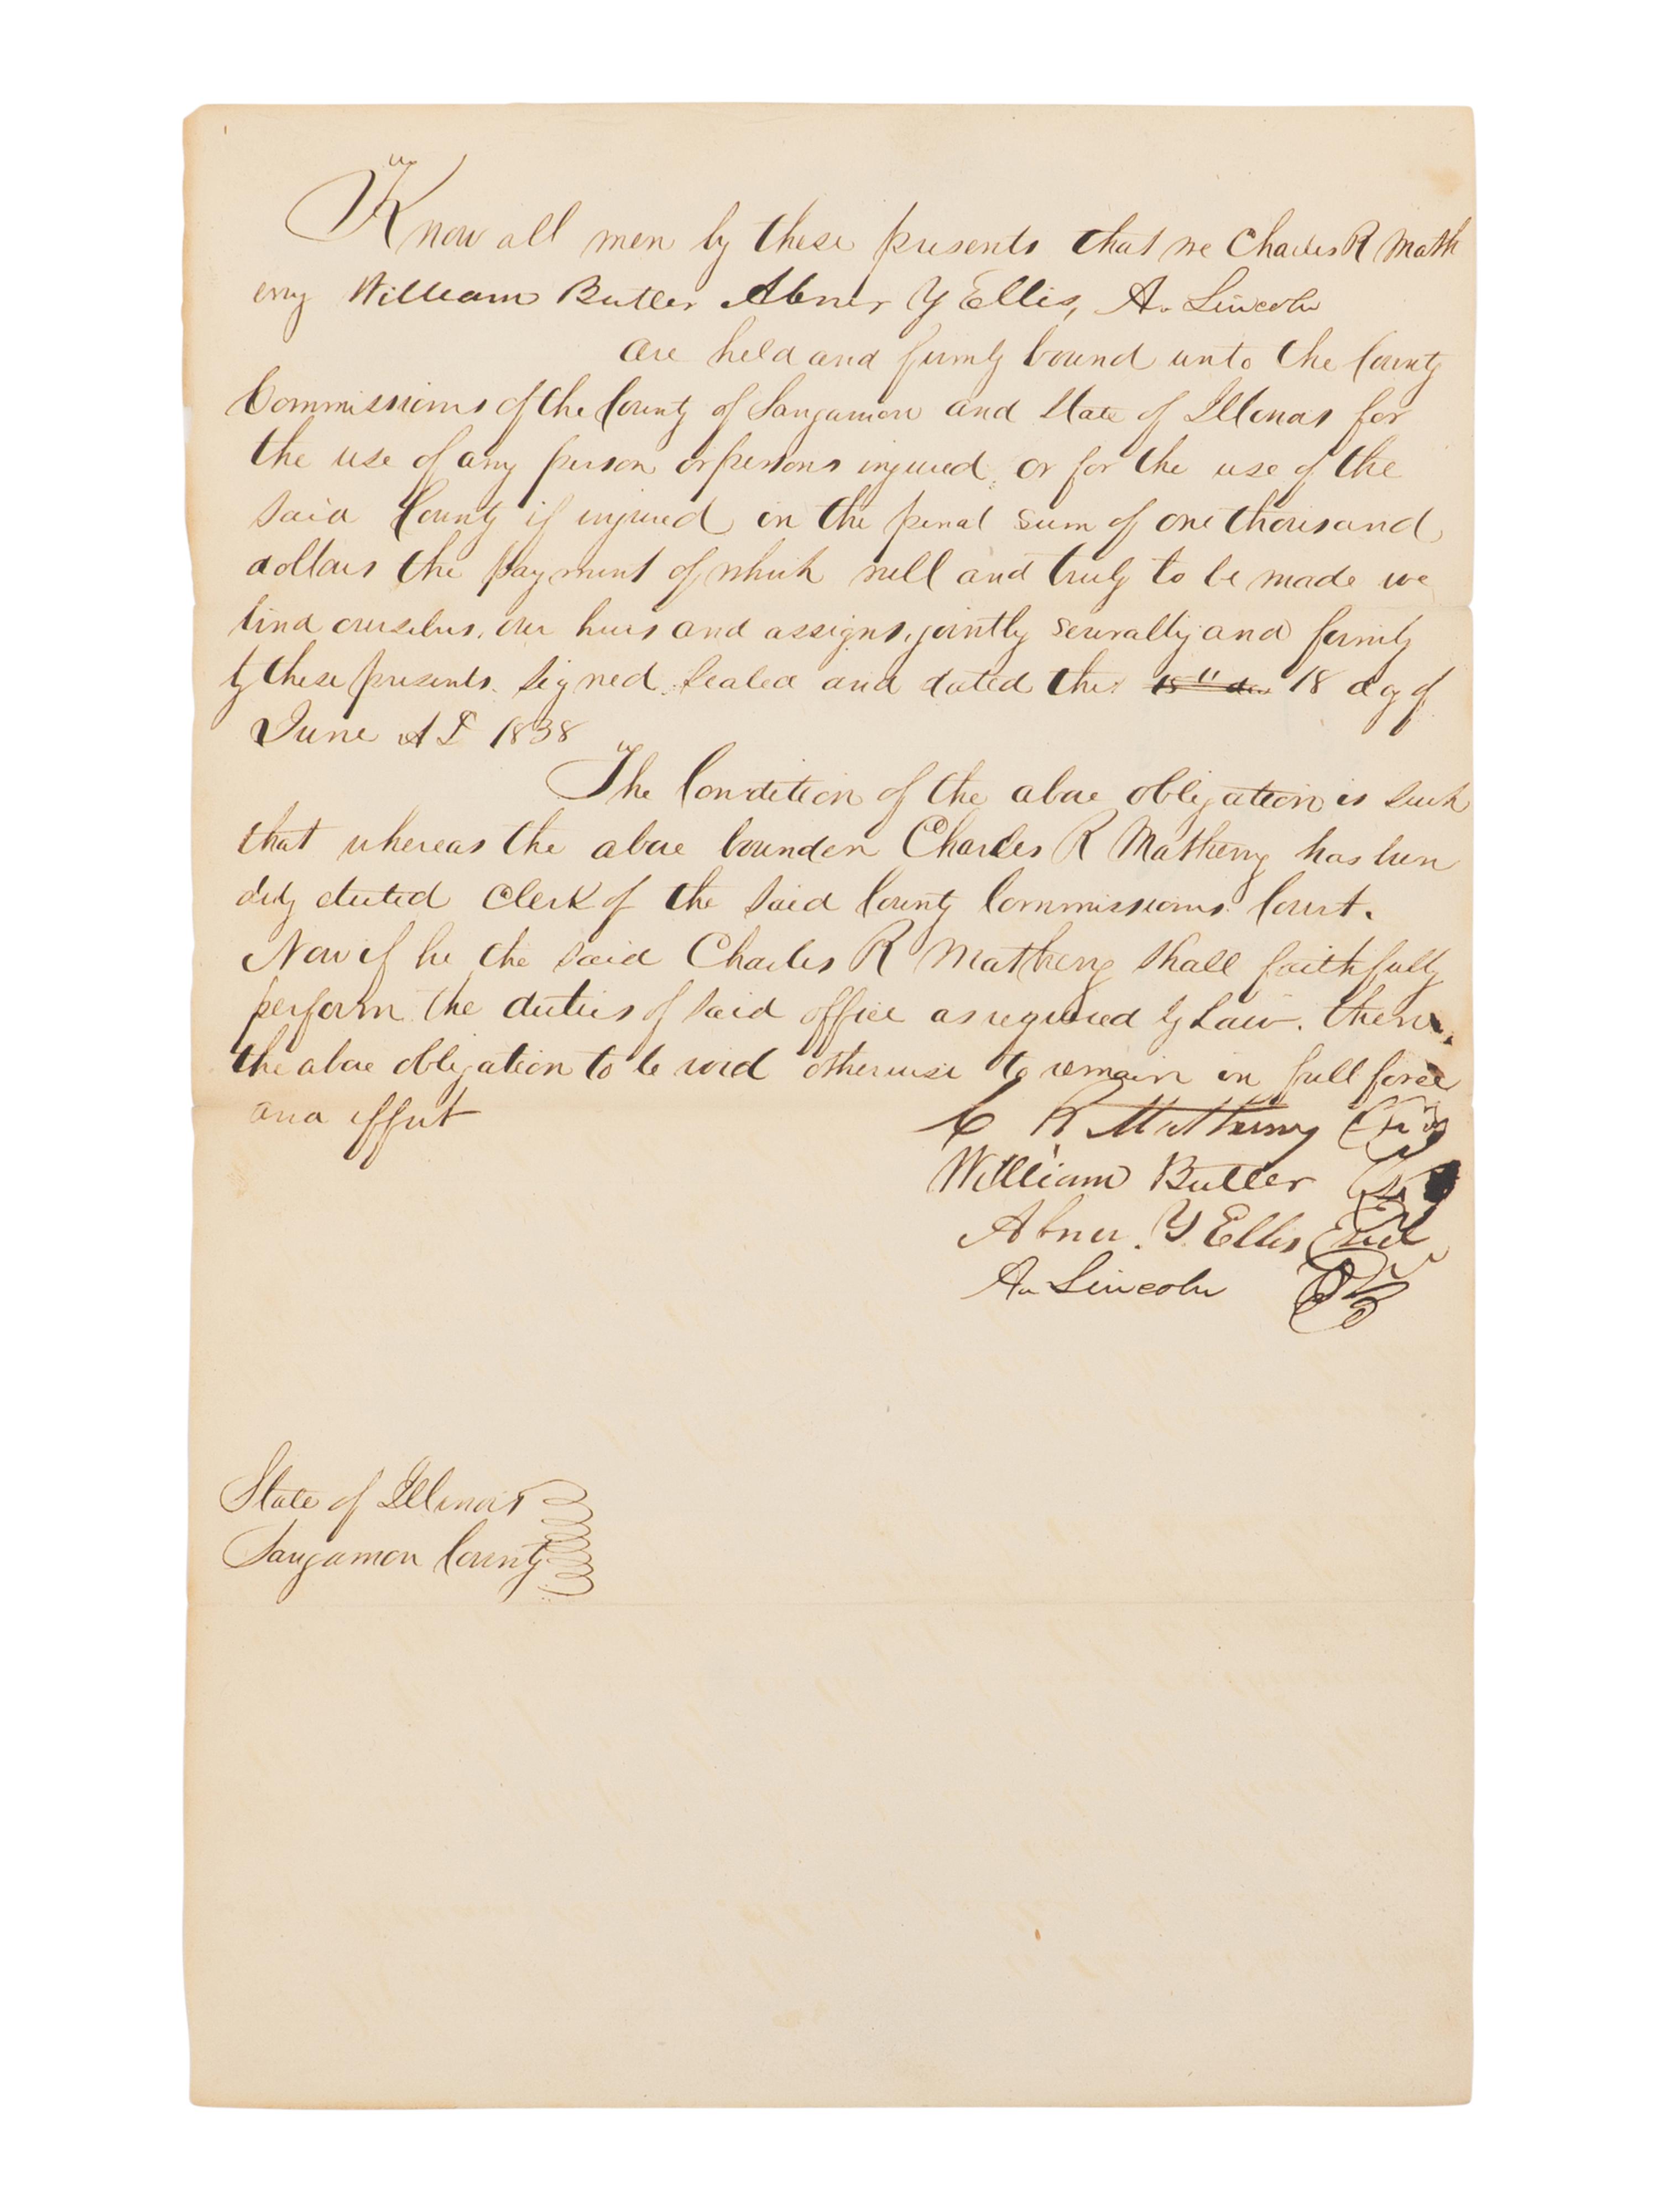 Know all men by these presents that we Charles R Math
eny William Butler Abner Y Ellis, A. Lincoln
are held and firmly bound unto the County
Commissioners of the County of Sangamon and State of Illinois for
the use of any person or persons injured, or for the use of the
said County if injured in the penal sum of one thousand
dollars the payment of which well and truly to be made we
bind ourselves, our heirs and assigns, jointly severally and firmly
by these presents. Signed, Sealed and dated this 18 day of
June AD 1838
The Condition of the above obligation is such
that whereas the above bounden Charles R Matheny has been
duly elected Clerk of the said County Commissioners Court.
Now if he the said Charles R Matheny shall faithfully
perform the duties of said office as required by Law. then
the above obligation to be void otherwise to remain in full force
and effect
C R Matheny
William Butler
Abner. Y. Ellis Seal
A. Lincoln
State of Illinois
Sangamon County